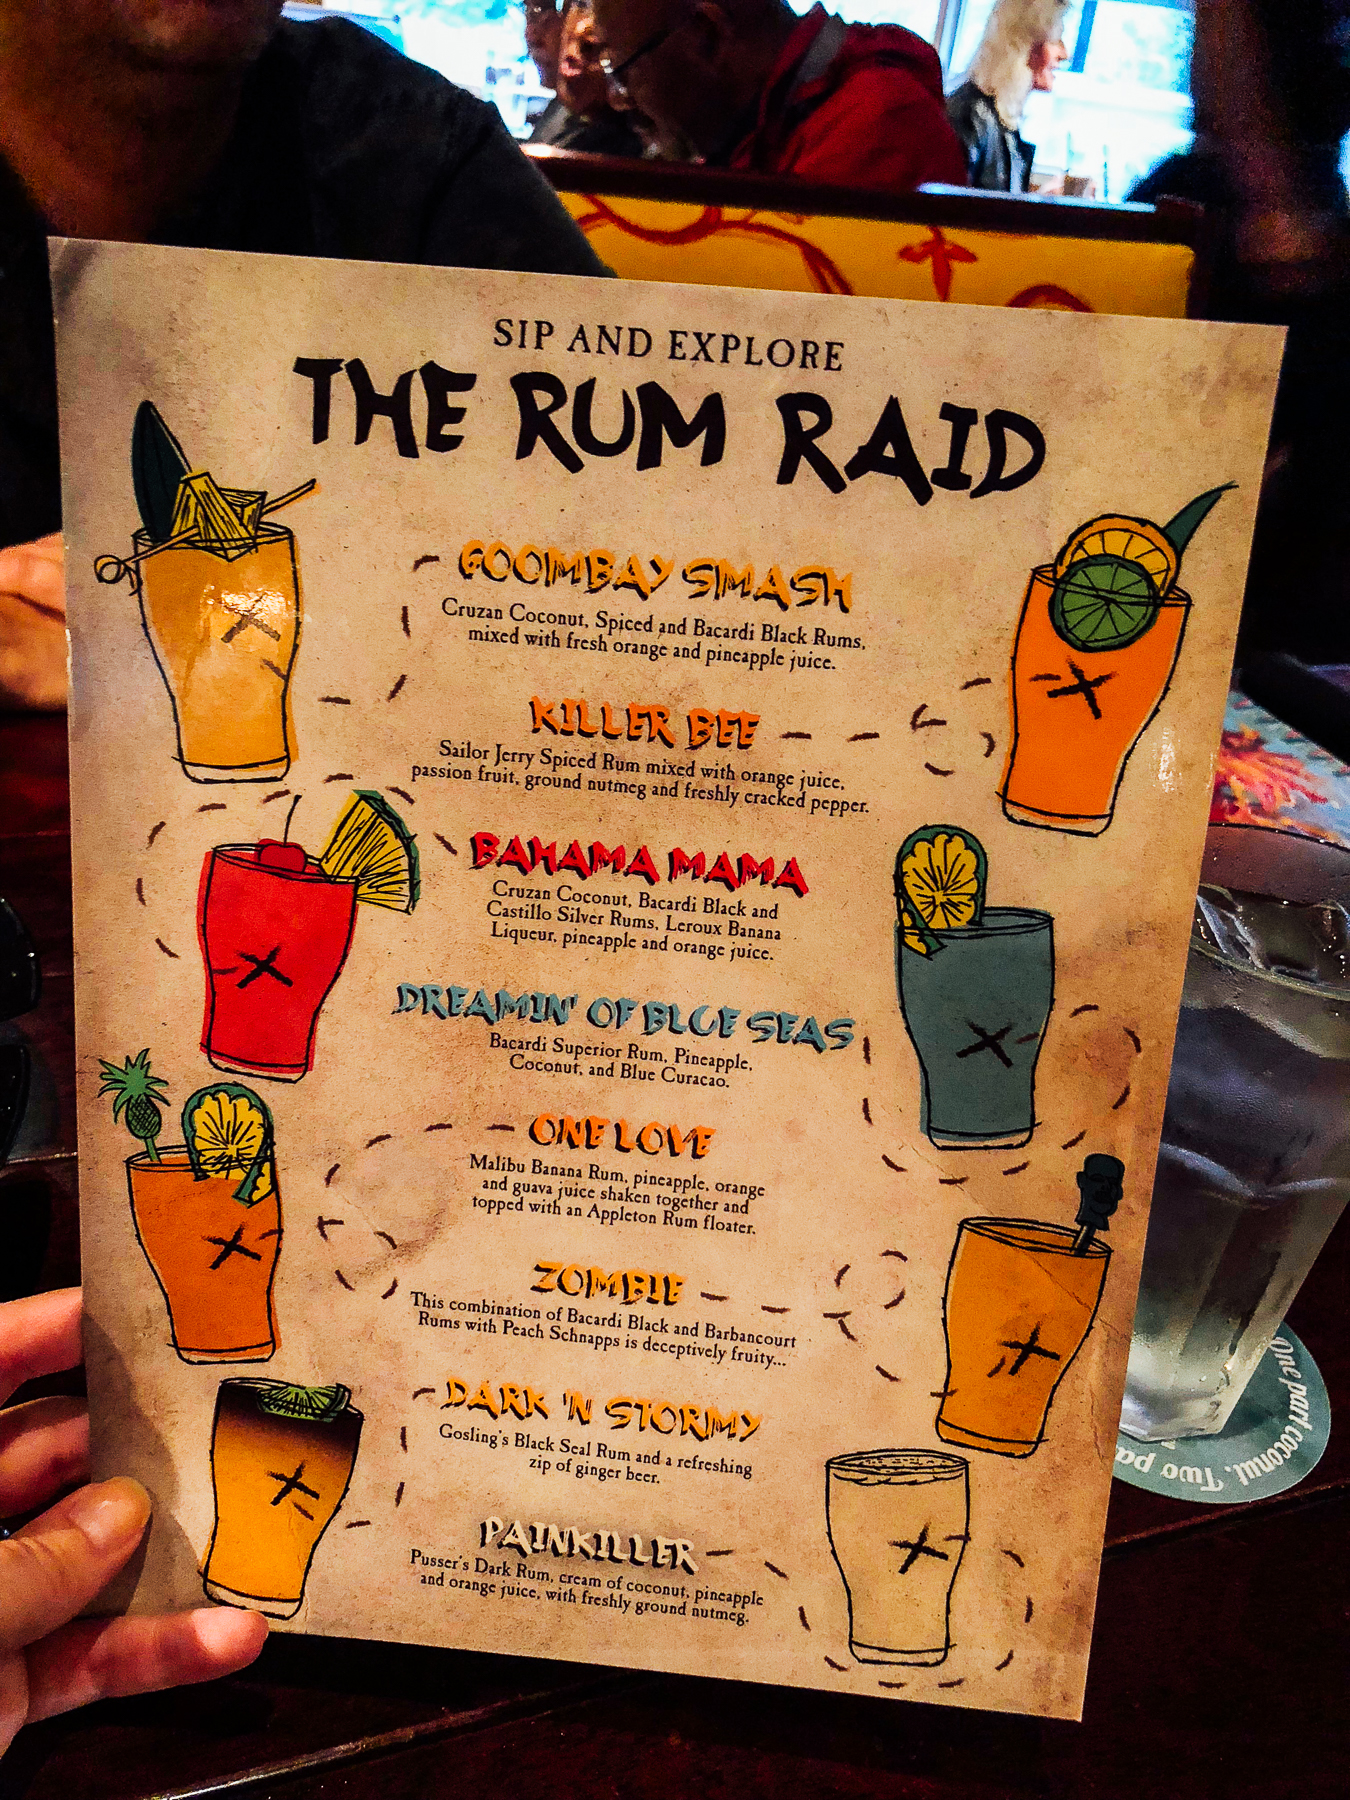 SIP AND EXPLORE
THE RUM RAID
GOOMBAY SMASH
Cruzan Coconut, Spiced and Bacardi Black Rums,
mixed with fresh orange and pineapple juice.
KILLER BEE
Sailor Jerry Spiced Rum mixed with orange juice,
passion fruit, ground nutmeg and freshly cracked pepper.
BAHAMA MAMA
Cruzan Coconut, Bacardi Black and
Castillo Silver Rums, Leroux Banana
Liqueur, pineapple and orange juice.
DREAMIN' OF BLUE SEAS
Bacardi Superior Rum, Pineapple,
Coconut, and Blue Curacao.
ONE LOVE
Malibu Banana Rum, pineapple, orange
and guava juice shaken together and
topped with an Appleton Rum floater.
ZOMBIE
This combination of Bacardi Black and Barbancourt
Rums with Peach Schnapps is deceptively fruity...
DARK 'N STORMY
Gosling's Black Seal Rum and a refreshing
zip of ginger beer.
PAINKILLER
Pusser's Dark Rum, cream of coconut, pineapple
and orange juice, with freshly ground nutmeg.
One part coconut. Two pa